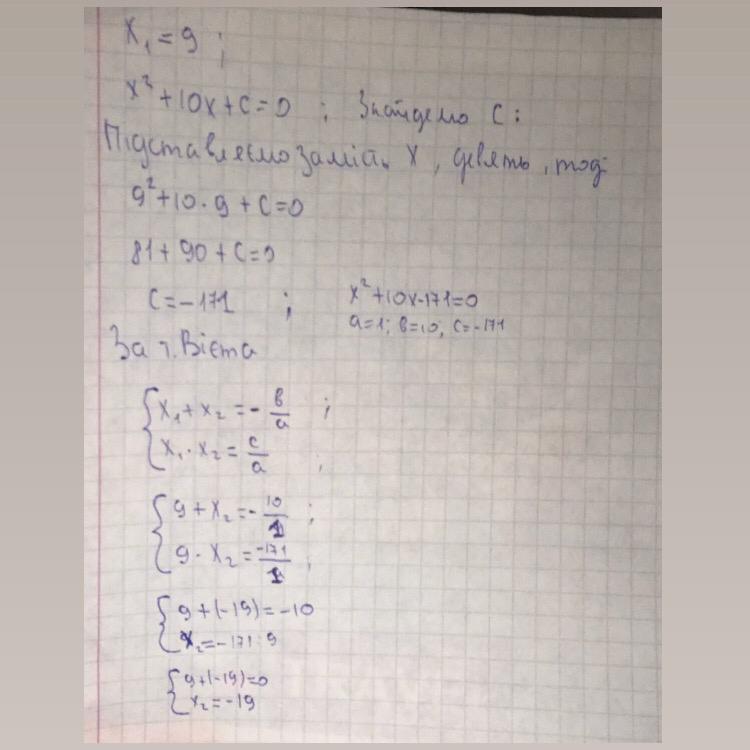 x₁ = 9 ;
x² + 10x + c = 0 ; Знайдемо C :
Підставляємо замість x, девять, тоді
9² + 10 · 9 + c = 0
81 + 90 + c = 0
c = -171 ; x² + 10x - 171 = 0
a = 1; в = 10; c = -171
За т. Вієта
{ x₁ + x₂ = - в/a ;
x₁ · x₂ = c/a ;
{ 9 + x₂ = - 10/1 ;
9 · x₂ = -171/1 ;
{ 9 + (-19) = -10
x₂ = -171 : 9
{ 9 + (-19) = 0
x₂ = -19